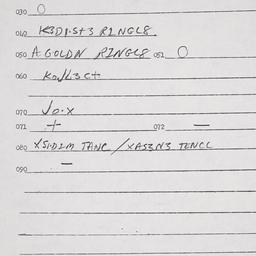 030 O
040 K3DI.ST3 RINGLS.
050 A GOLDN RINGLS 051 O
060
070 Jo.x
071 + 072 —
080 XSIDZM TANC / XAS3N3 TENCL
090 —